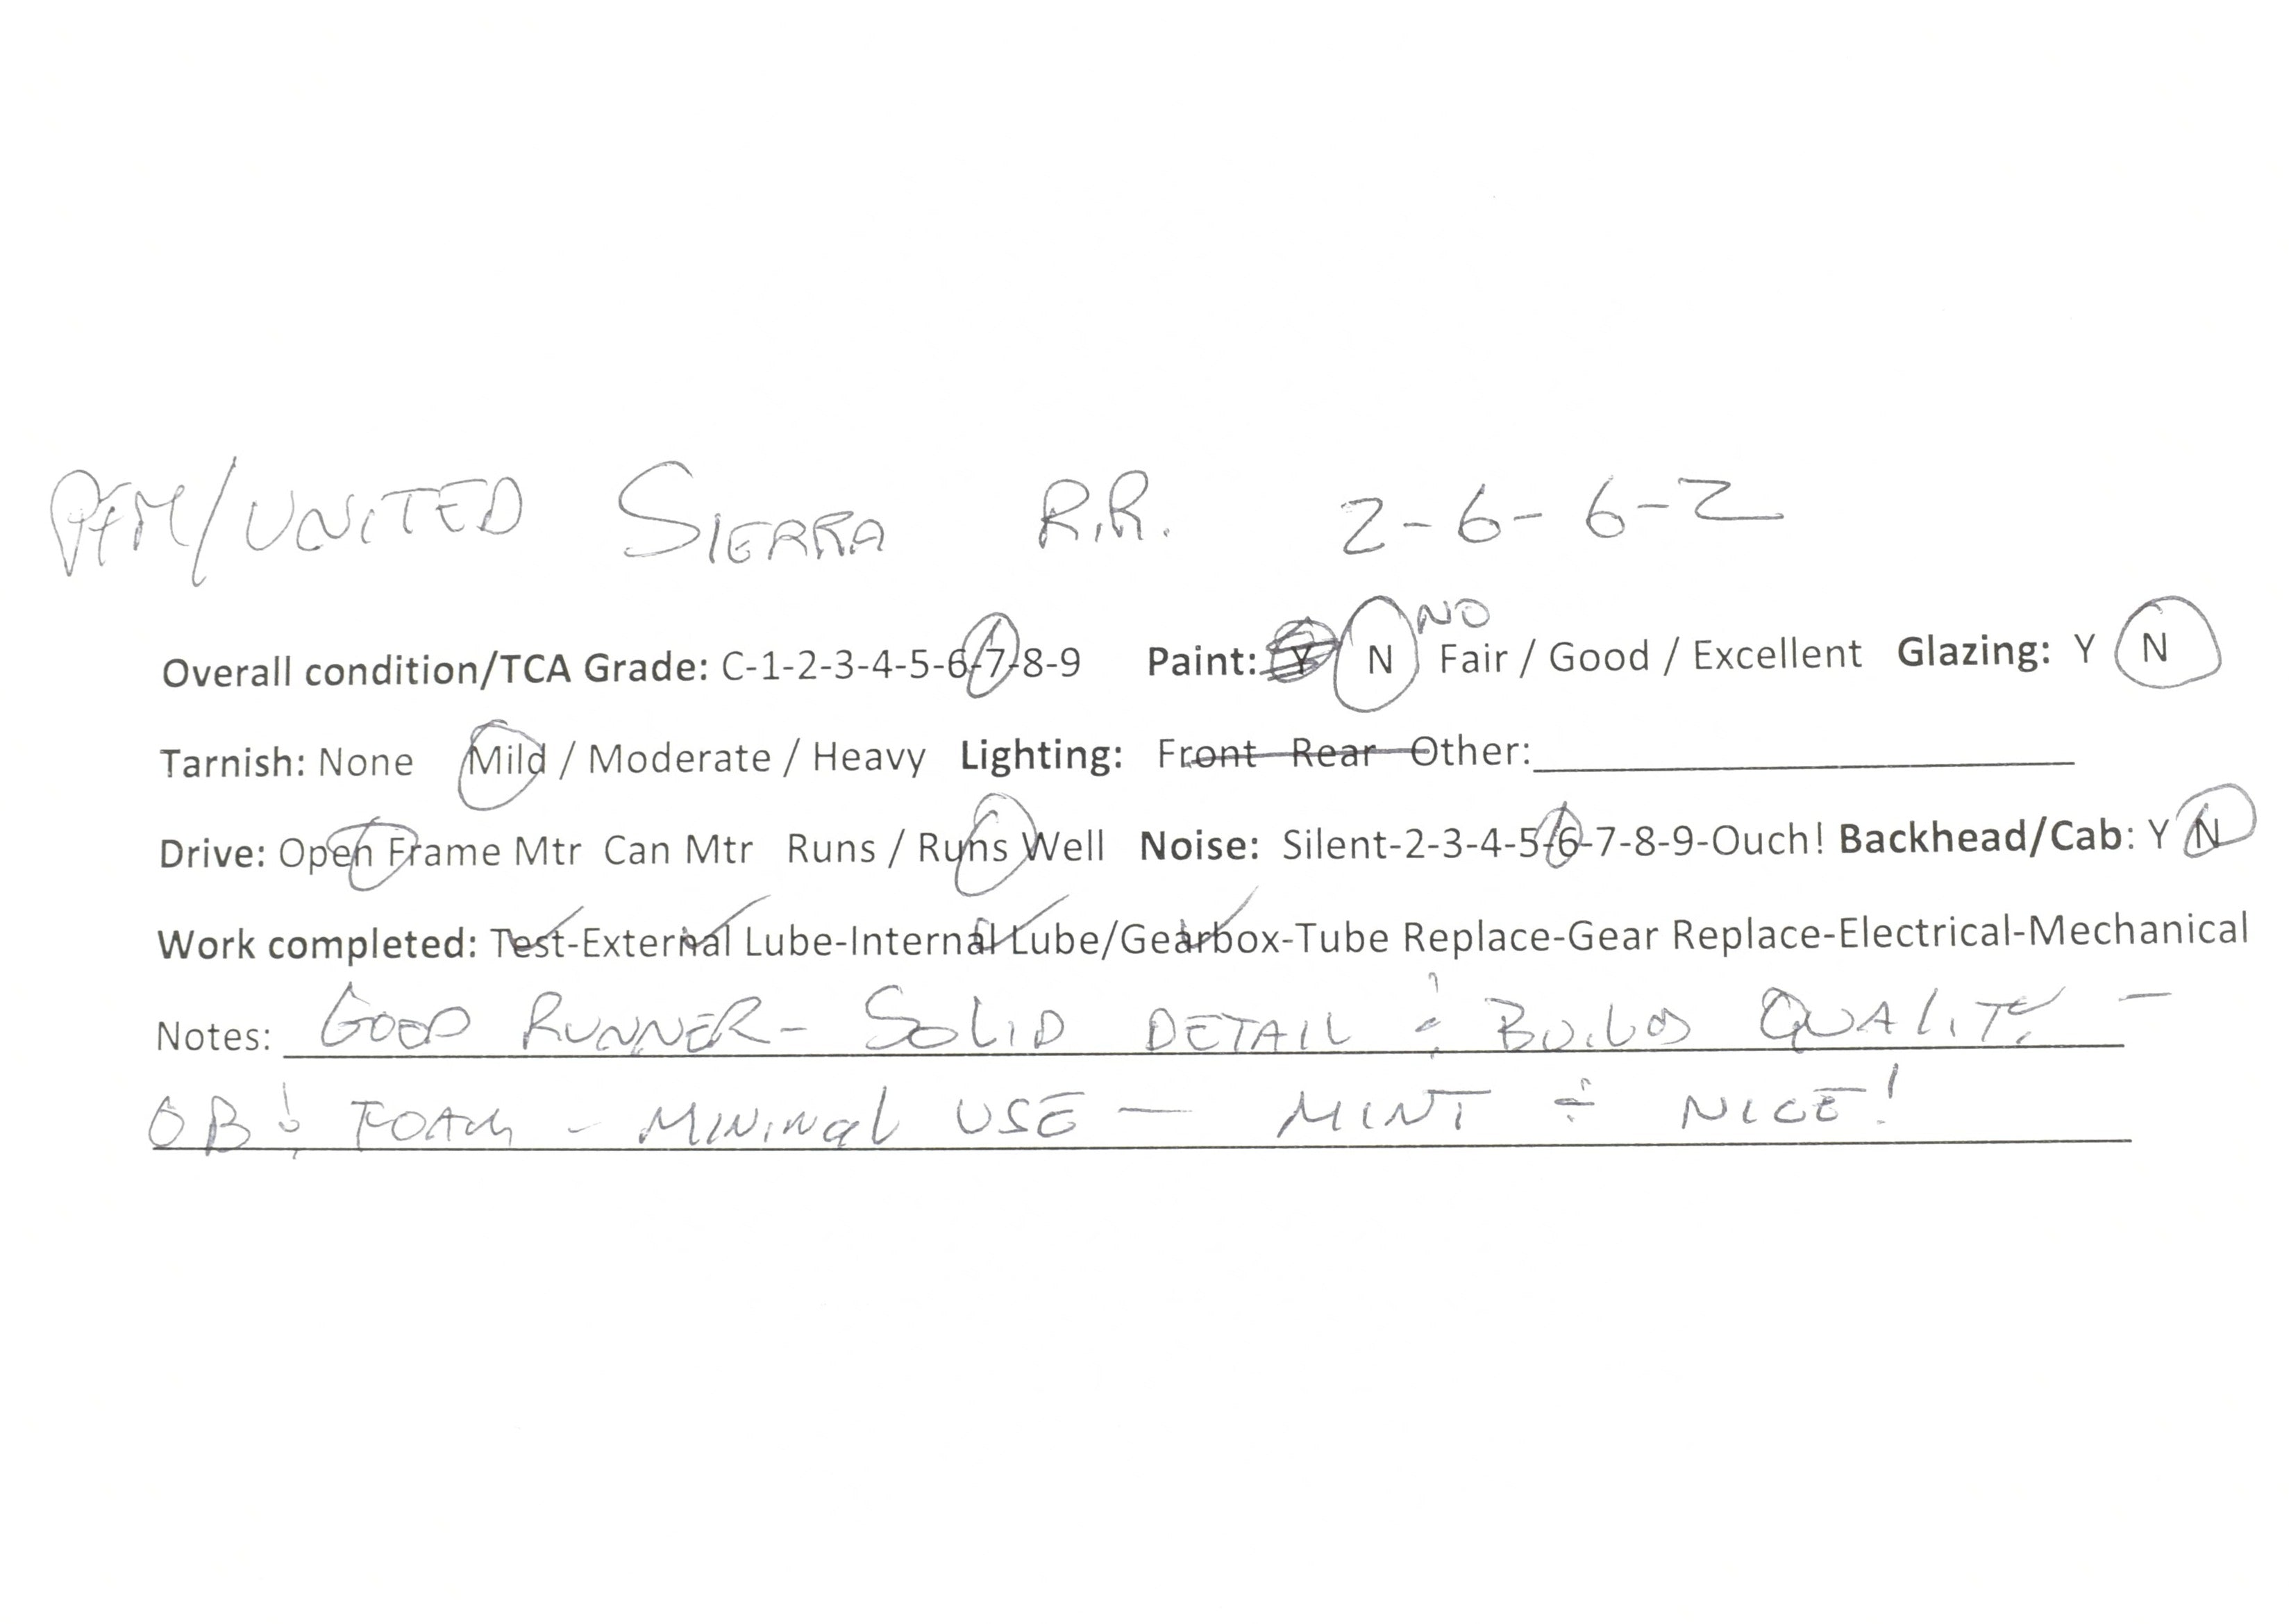 PFM/UNITED SIERRA R.R. 2-6-6-2
NO
Overall condition/TCA Grade: C-1-2-3-4-5-6-7-8-9 Paint: Y N Fair / Good / Excellent Glazing: Y N
Tarnish: None Mild / Moderate / Heavy Lighting: Front Rear Other:
Drive: Open Frame Mtr Can Mtr Runs / Runs Well Noise: Silent-2-3-4-5-6-7-8-9-Ouch! Backhead/Cab: Y N
Work completed: Test-External Lube-Internal Lube/Gearbox-Tube Replace-Gear Replace-Electrical-Mechanical
Notes: GOOD RUNNER - SOLID DETAIL & BUILD QUALITY -
OB & FOAM - MINIMAL USE - MINT & NICE!